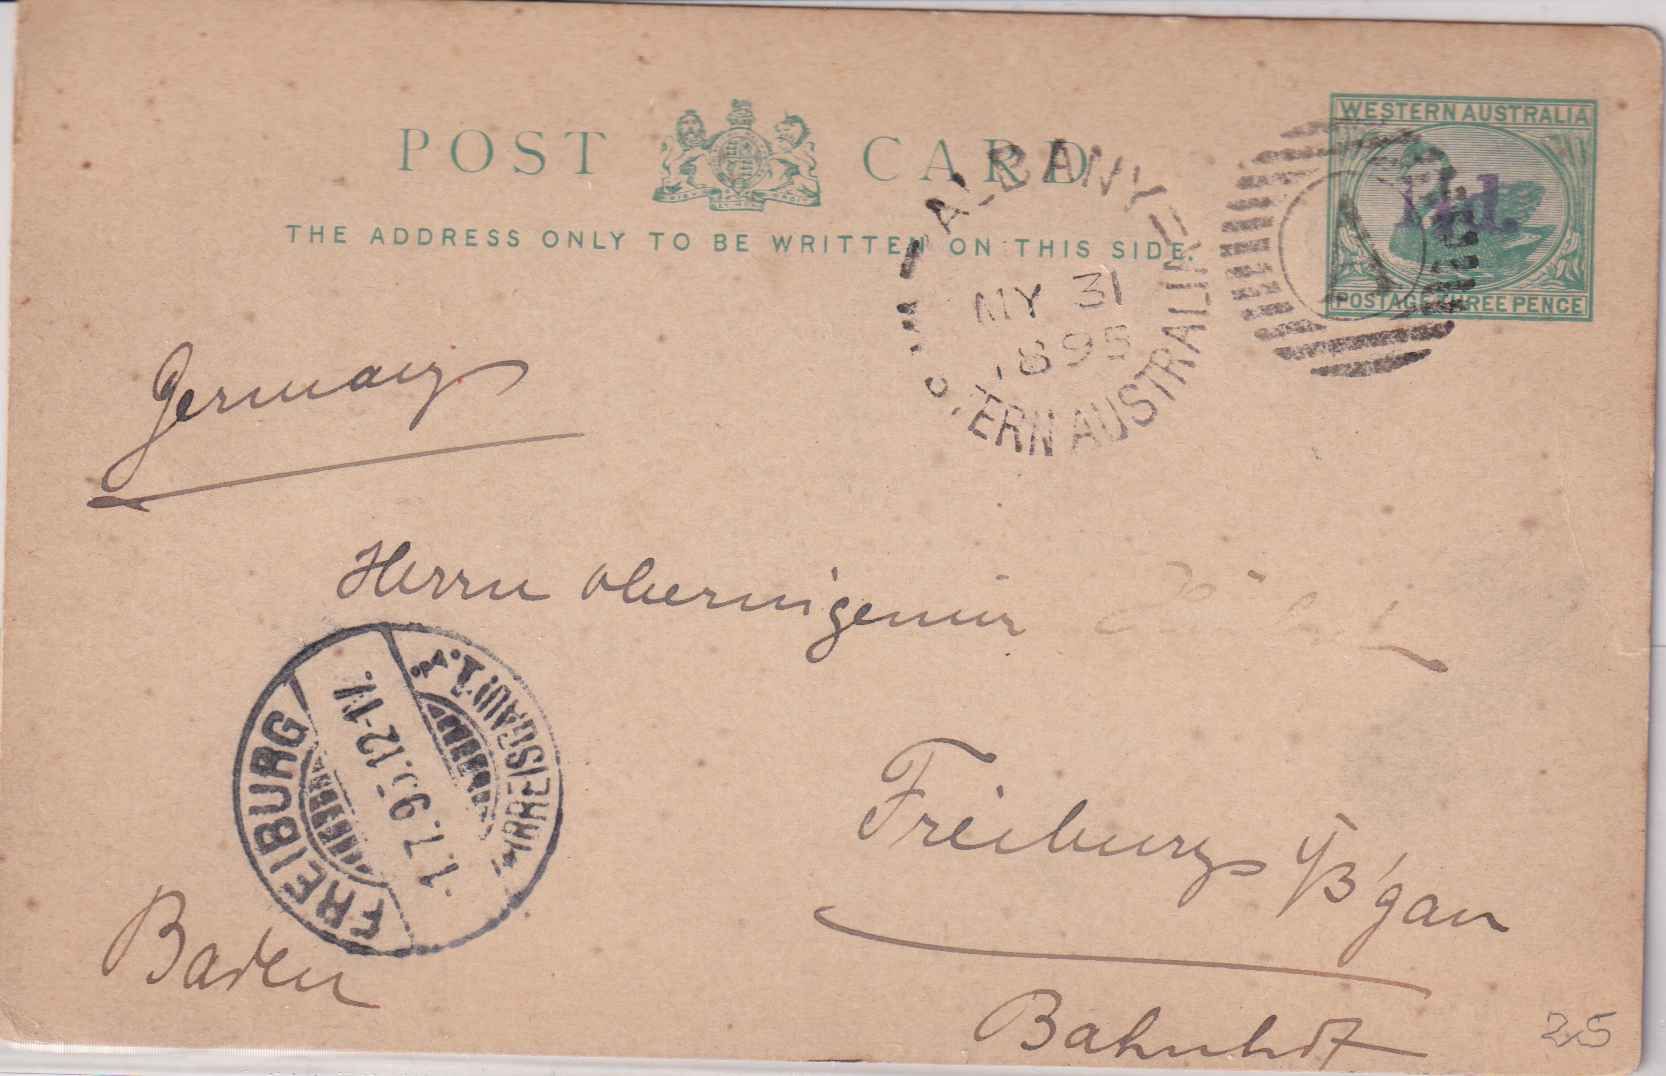 WESTERN AUSTRALIA
POST CARD
1½d.
A
THE ADDRESS ONLY TO BE WRITTEN ON THIS SIDE.
POSTAGE THREE PENCE
ALBANY
MY 31
1895
WESTERN AUSTRALIA
Germany
Herrn Oberingenieur
FREIBURG
1.7.95.12-1N.
(BREISGAU) 1.
Freiburg i/B'gau
Baden
Bahnhof
2,5